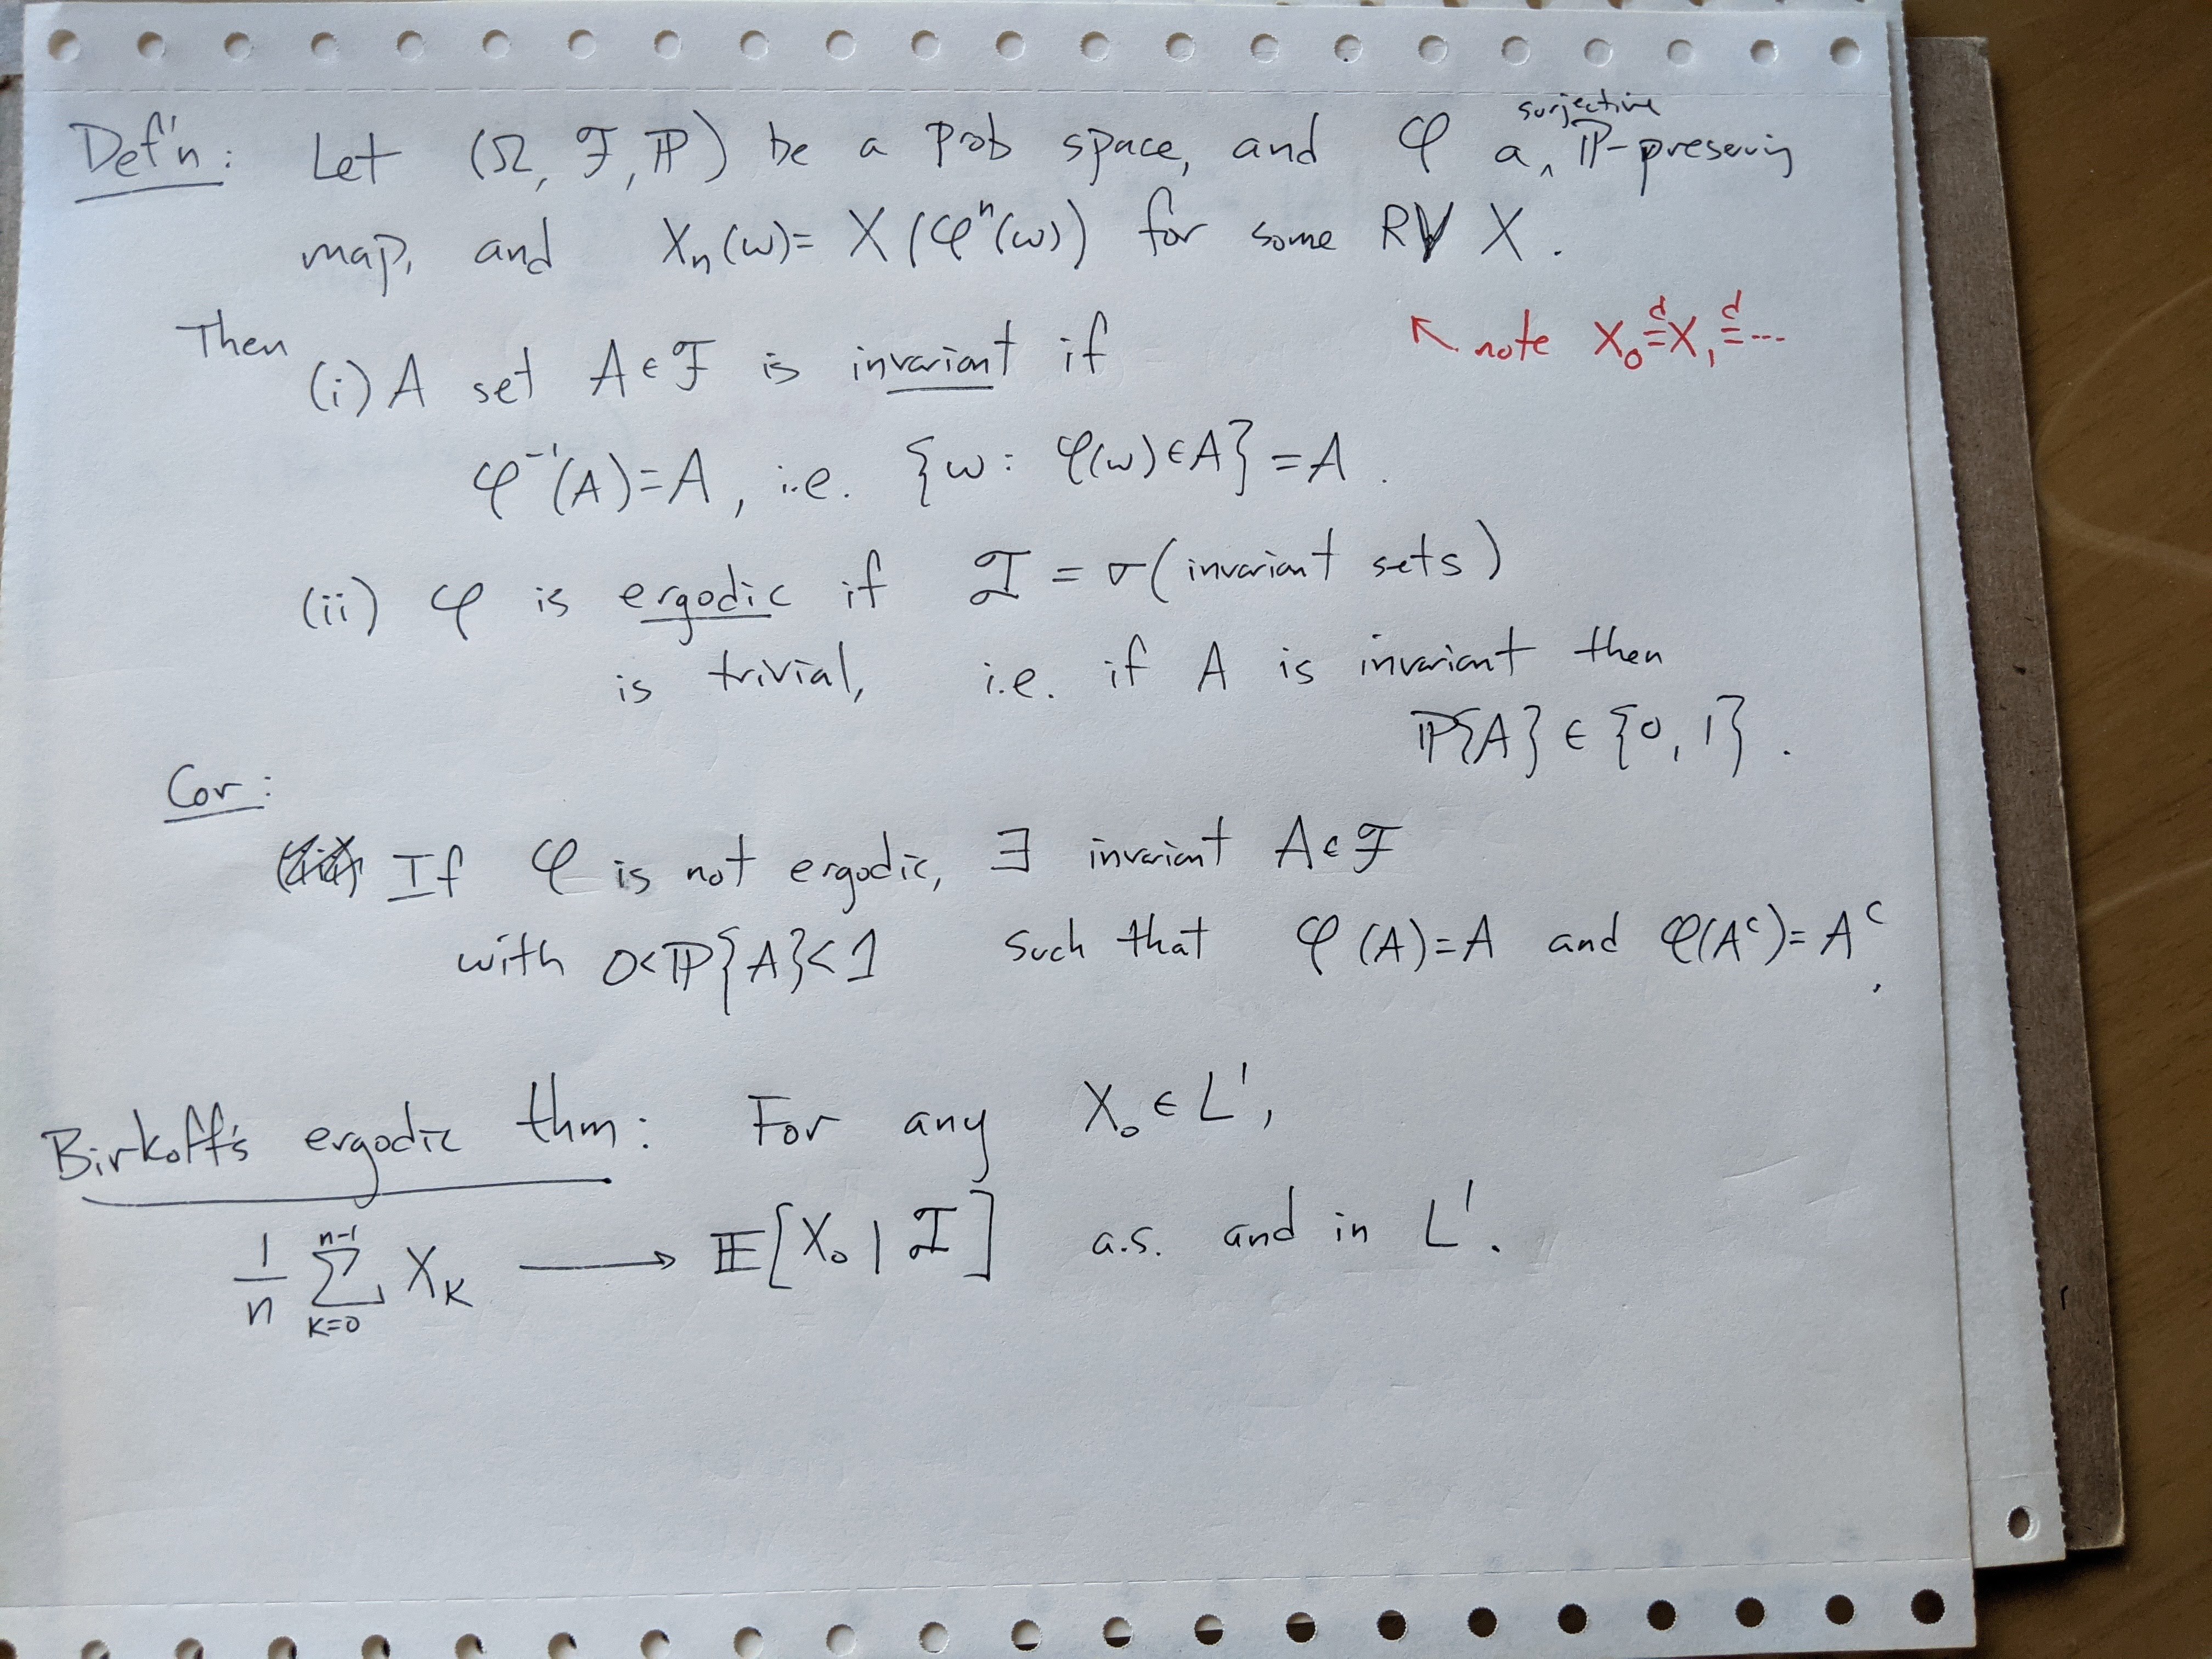 Def'n: Let (Ω, ℱ, ℙ) be a prob space, and φ a ‸surjective ℙ-preserving
map, and Xₙ(ω) = X(φⁿ(ω)) for some RV X.
↖ note X₀ =ᵈ X₁ =ᵈ ---
Then (i) A set A ∈ ℱ is invariant if
φ⁻¹(A) = A, i.e. {ω: φ(ω) ∈ A} = A.
(ii) φ is ergodic if ℐ = σ(invariant sets)
is trivial, i.e. if A is invariant then
ℙ{A} ∈ {0, 1}.
Cor:
If φ is not ergodic, ∃ invariant A ∈ ℱ
with 0 < ℙ{A} < 1 such that φ(A) = A and φ(Aᶜ) = Aᶜ.
Birkoff's ergodic thm: For any X₀ ∈ L¹,
1/n ∑_{k=0}^{n-1} X_k ⟶ 𝔼[X₀ | ℐ] a.s. and in L¹.